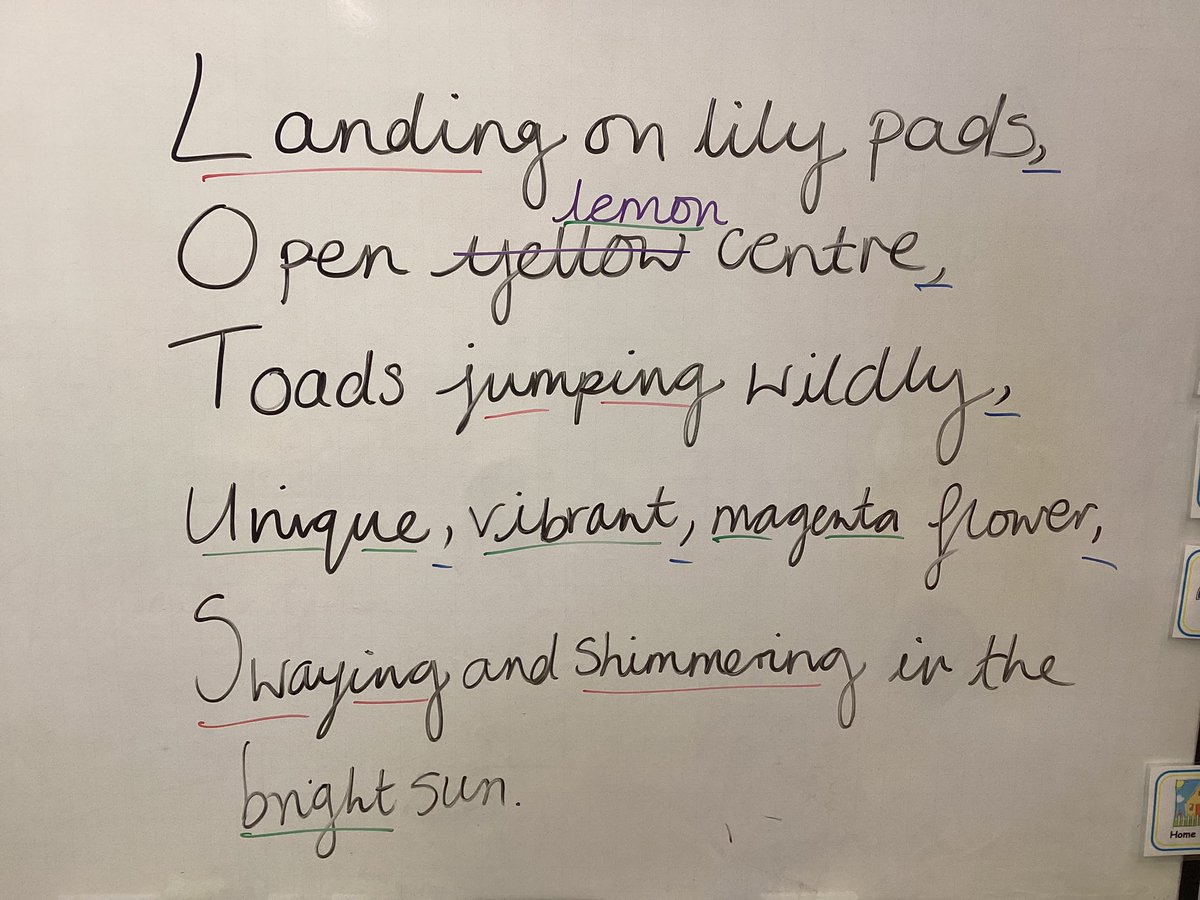 Landing on lily pads,
lemon
Open yellow centre,
Toads jumping wildly,
Unique, vibrant, magenta flower,
Swaying and shimmering in the
bright sun.
Home